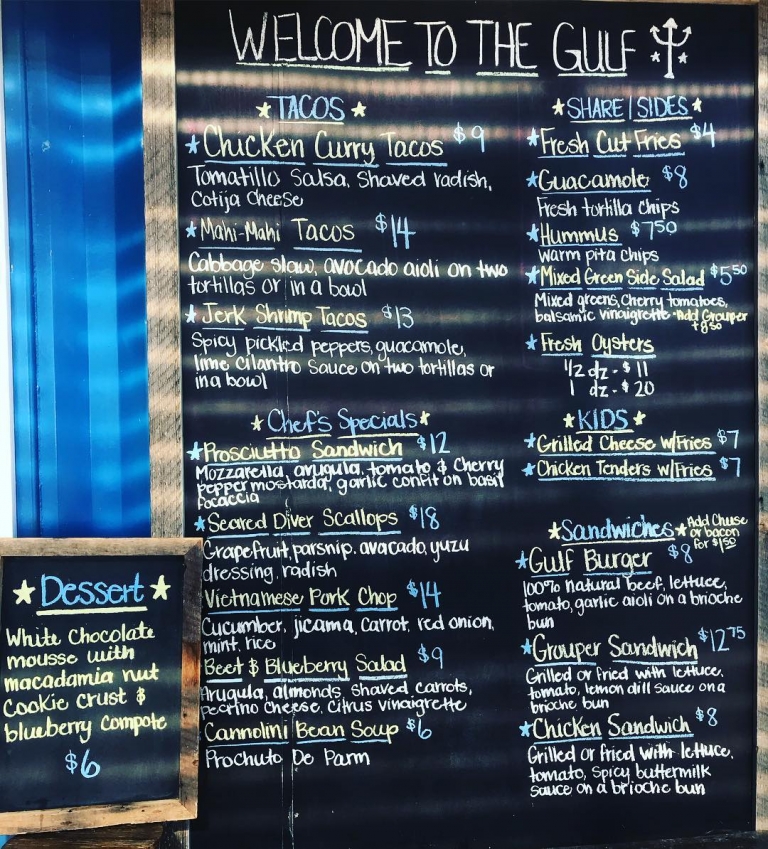 WELCOME TO THE GULF
TACOS
Chicken Curry Tacos $9
Tomatillo Salsa, Shaved radish,
Cotija Cheese
Mahi-Mahi Tacos $14
Cabbage slaw, avocado aioli on two
tortillas or in a bowl
Jerk Shrimp Tacos $13
Spicy pickled peppers, guacamole,
lime cilantro sauce on two tortillas or
in a bowl
Chef's Specials
Prosciutto Sandwich $12
Mozzarella, arugula, tomato & Cherry
pepper mostarda, garlic confit on basil
focaccia
Seared Diver Scallops $18
Grapefruit, parsnip, avocado, yuzu
dressing, radish
Vietnamese Pork Chop $14
Cucumber, jicama, carrot, red onion,
mint, rice
Beet & Blueberry Salad $9
Arugula, almonds, shaved carrots,
pecrino cheese, citrus vinaigrette
Cannolini Bean Soup $6
Prochuto De Parm
SHARE | SIDES
Fresh Cut Fries $4
Guacamole $8
Fresh tortilla chips
Hummus $7.50
Warm pita chips
Mixed Green Side Salad $5.50
Mixed greens, Cherry tomatoes,
balsamic vinaigrette *Add Grouper
+8.50
Fresh Oysters
1/2 dz - $11
1 dz - $20
KIDS
Grilled Cheese w/Fries $7
Chicken Tenders w/Fries $7
Sandwiches Add Cheese
or bacon
for $1.50
Gulf Burger $8
100% natural beef, lettuce,
tomato, garlic aioli on a brioche
bun
Grouper Sandwich $12.75
Grilled or fried with lettuce,
tomato, lemon dill sauce on a
brioche bun
Chicken Sandwich $8
Grilled or fried with lettuce,
tomato, spicy buttermilk
sauce on a brioche bun
Dessert
White Chocolate
mousse with
macadamia nut
Cookie Crust &
blueberry compote
$6